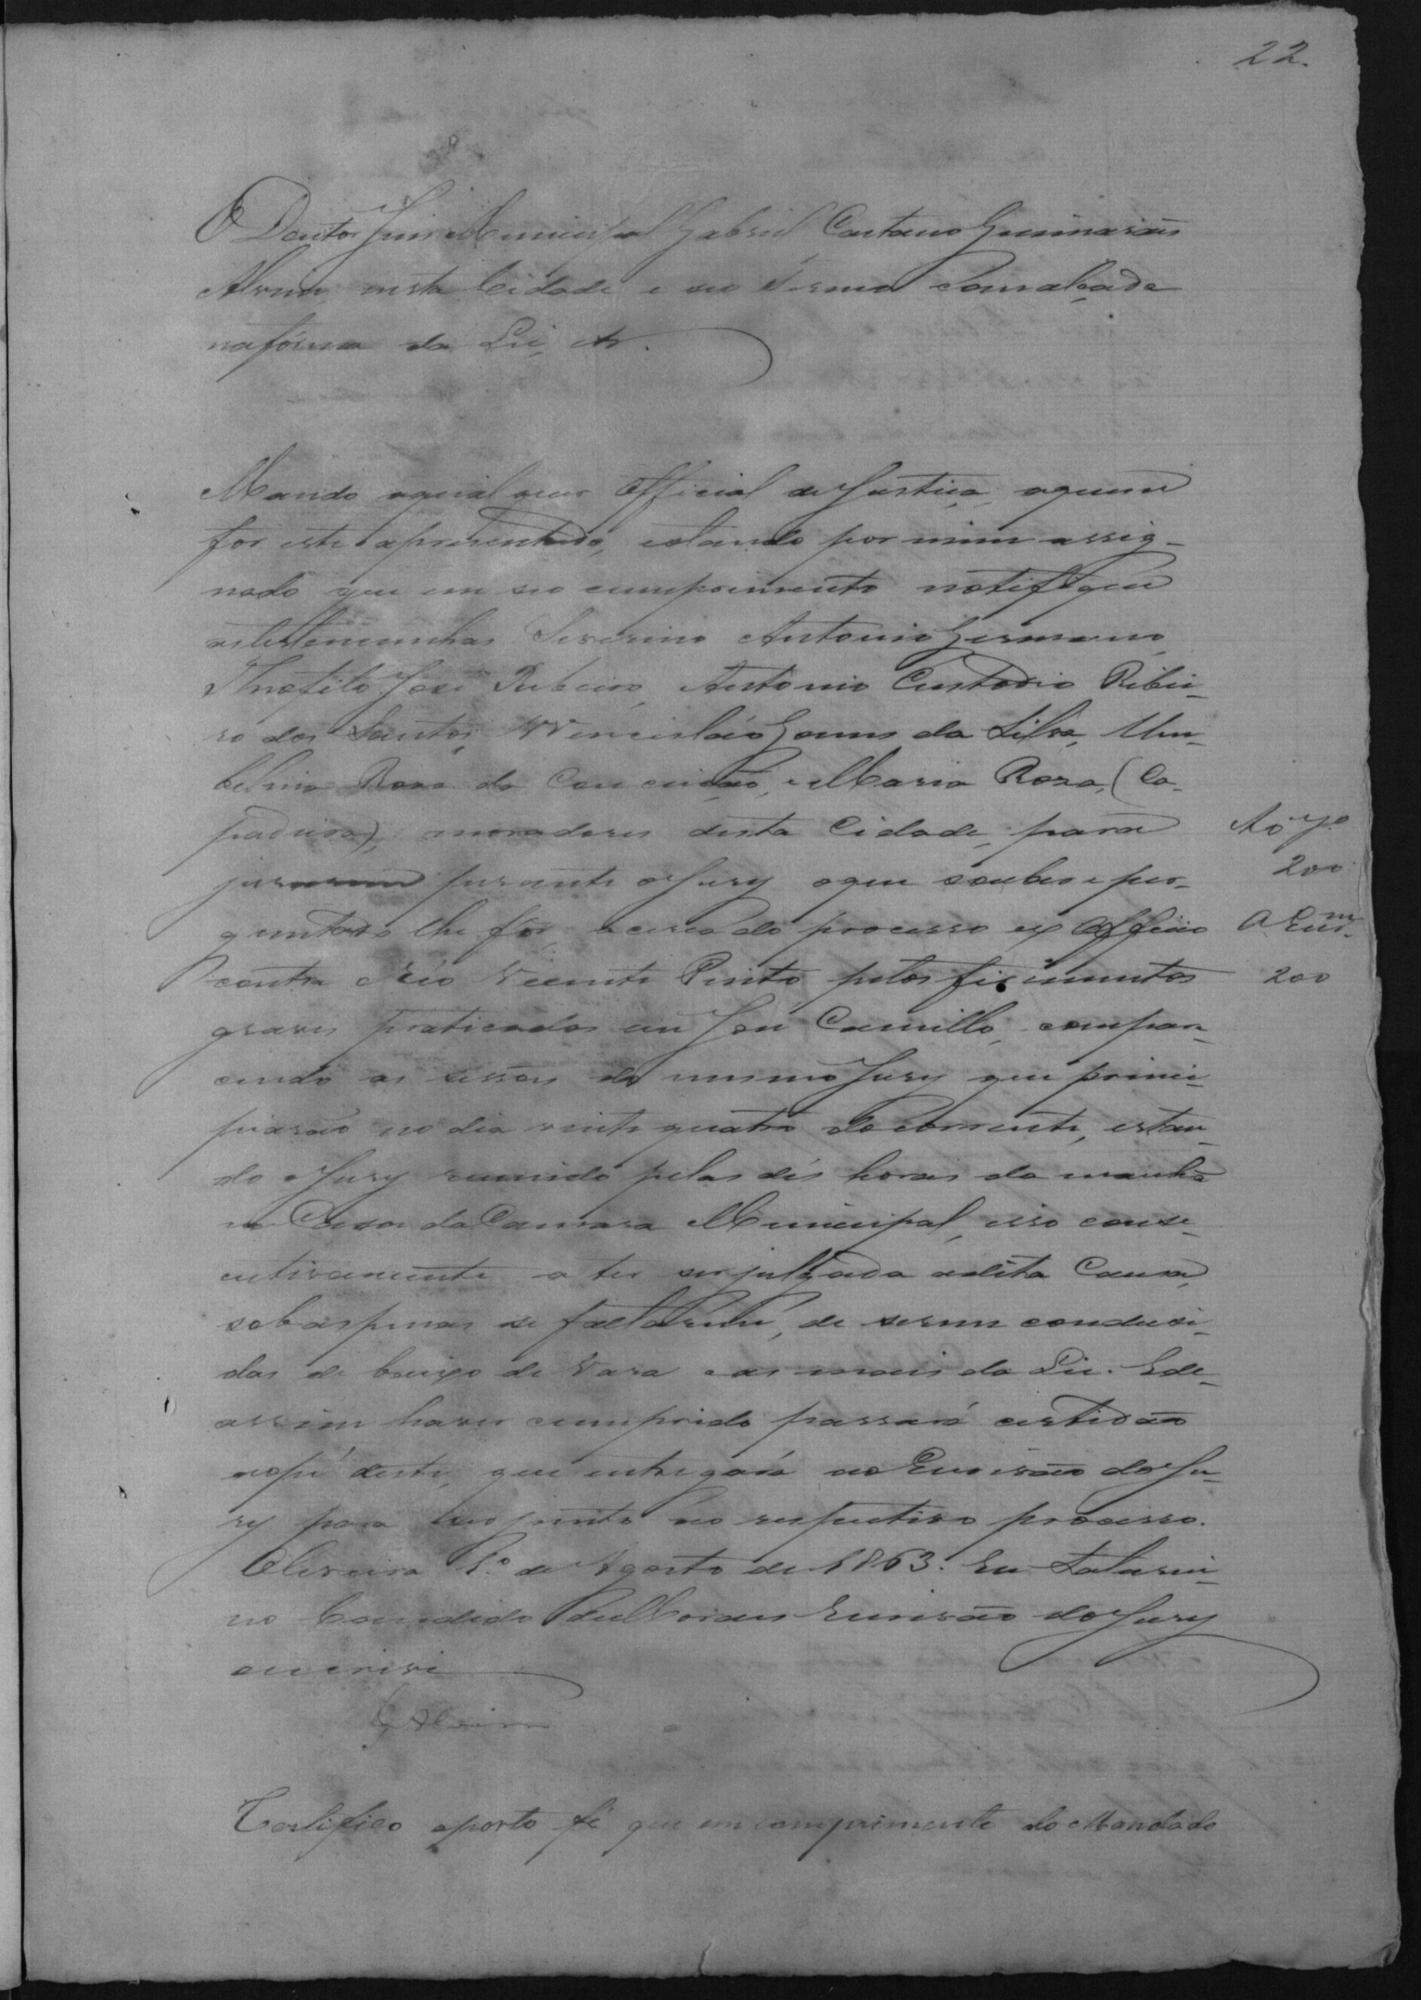 22.
O Doutor Juiz Municipal Gabriel Caetano Guimarães
Alvim nesta Cidade e seo Termo
na fórma da Lei, etc.
Mando aqualquer Official de Justiça, aquem
for este apresentado, estando por mim assig-
nado que em seo cumprimento notifique
astestemunhas Severino Antonio Germano,
Theofilo José Ribeiro, Antonio Custodio Ribei-
ro dos Santos, Wencisláo Gomes da Silva, Um-
belina Rosa da Conceição, e Maria Roza, (Ca-
), moradores desta Cidade, para
jurarem perante o Jury oque souber e per-
guntado lhe fôr, acerca do processo ex Officio
contra o Réo Vicente Pinto pelos ferimentos
graves praticados em José Camillo, compare-
cendo as sessões do mesmo Jury que princi-
piarão no dia vinte quatro do corrente, estan-
do o Jury reunido pelas dés horas da manhã
na Casa da Camara Municipal, isso conse-
cutivamente a ter ser julgada adita Causa,
sobaspenas se faltarem, de serem condusi-
das de baixo de Vara e as mais da Lei. Ede-
assim haver cumprido passará certidão
aopé deste, que entregará ao Escrivão do Ju-
ry para ser junto ao respectivo processo.
Oliveira 1º de Agosto de 1863. Eu Saturni-
no Candido de Moraes Escrivão do Jury
escrevi
GAlvim
Certifico eporto fé que em comprimento do Mandado
Ao Jº
200
200